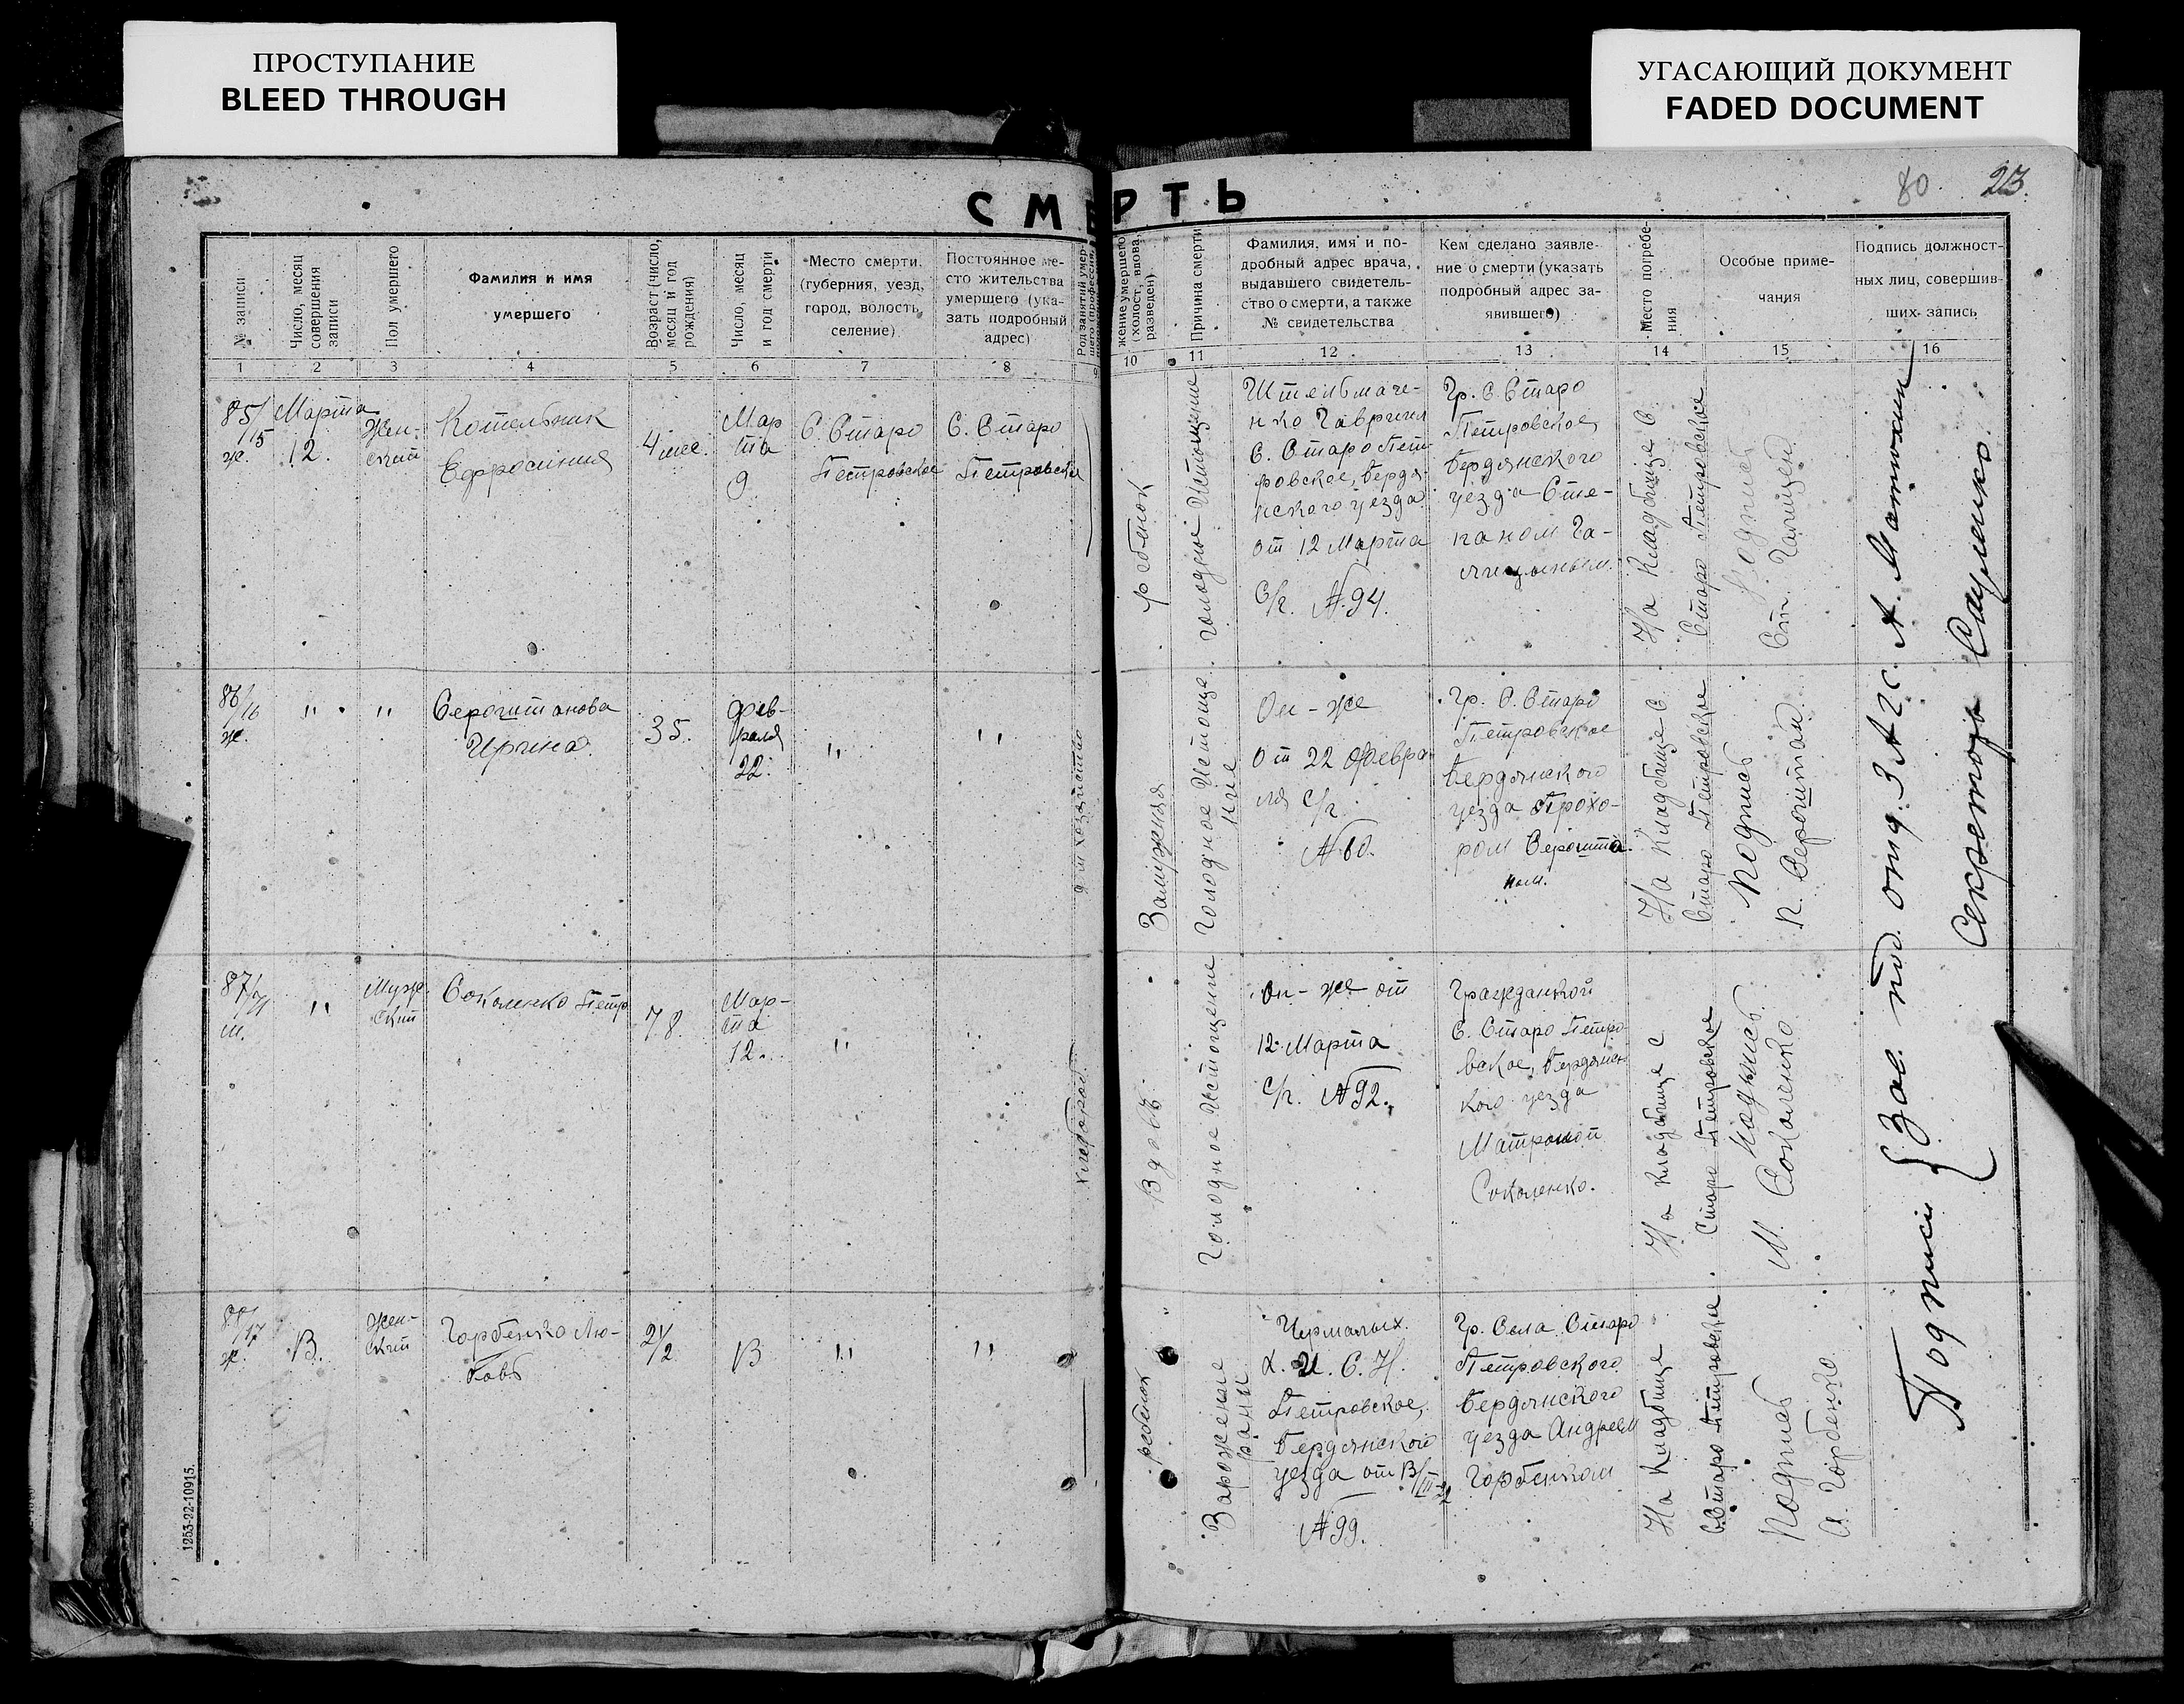 ПРОСТУПАНИЕ
BLEED THROUGH
УГАСАЮЩИЙ ДОКУМЕНТ
FADED DOCUMENT
80
213
СМЕРТЬ
№ записи
Число, месяц
совершения
записи
Пол умершего
Фамилия и имя
умершего
Возраст (число,
месяц и год
рождения)
Число, месяц
и год смерти
Место смерти
(губерния, уезд,
город, волость,
селение)
Постоянное ме-
сто жительства
умершего (ука-
зать подробный
адрес)
Род занятий умер-
шего (профессия)
жение умершего
(холост, вдова,
разведен)
Причина смерти
Фамилия, имя и по-
дробный адрес врача,
выдавшего свидетель-
ство о смерти, а также
№ свидетельства
Кем сделано заявле-
ние о смерти (указать
подробный адрес за-
явившего)
Место погребе-
ния
Особые приме-
чания
Подпись должност-
ных лиц, совершив-
ших запись
1
2
3
4
5
6
7
8
9
10
11
12
13
14
15
16
85/15
ж.
Марта
12.
Жен-
ский
Котельник
Ефросиния
4 мес.
Мар
та
9
С. Старо
Петровское
С. Старо
Петровское
ребенок
Голодное Истощение
Штельмаче-
нко Гавриил
С. Старо Пет
ровское, Бердя-
нского уезда
от 12 Марта
С/г. № 94.
Гр. С. Старо
Петровское,
Бердянского
уезда Сте-
паном Га-
лицыным.
На Кладбище С.
Старо Петровское
Подпись
Ст. Галицын
86/16
ж.
"
"
Серогштанова
Ирина
35.
Фев-
раля
22.
"
"
дом хозяйство
Замужняя
Голодное Истоще
ние
Он-же
От 22 Февра
ля С/г.
№ 60.
Гр. С. Старо
Петровское
Бердянского
уезда Прохо-
ром Серогшта
ном.
На Кладбище С.
Старо Петровское
Подпись
П. Серогштан
87/71
м.
"
Муж-
ской
Соколенко Петр
78.
Мар-
та
12.
"
хлебороб
Вдовъ
Голодное Истощение
Он-же от
12 Марта
С/г. № 92.
Гражданкой
С. Старо Петро-
вское, Бердянс
кого уезда
Матроной
Соколенко.
На Кладбище С
Старо Петровское
Подпись
М. Соколенко
88/17
ж.
13.
Жен-
ский
Горбенко Лю-
бовь
2 1/2
13
"
"
ребенок
Заражение
раны
Чермалых.
Х. И. С. Н.
Петровское,
Бердянского
уезда от 13/III-22
№ 99.
Гр. Села Старо
Петровского
Бердянского
уезда Андреем
Горбенком
На Кладбище
С. Старо Петровское
Подпись
А. Горбенко
Подписи { Зав. под. отд. ЗАГС. А. Матюхин
Секретарь Сауленко.
1253-22-10915.